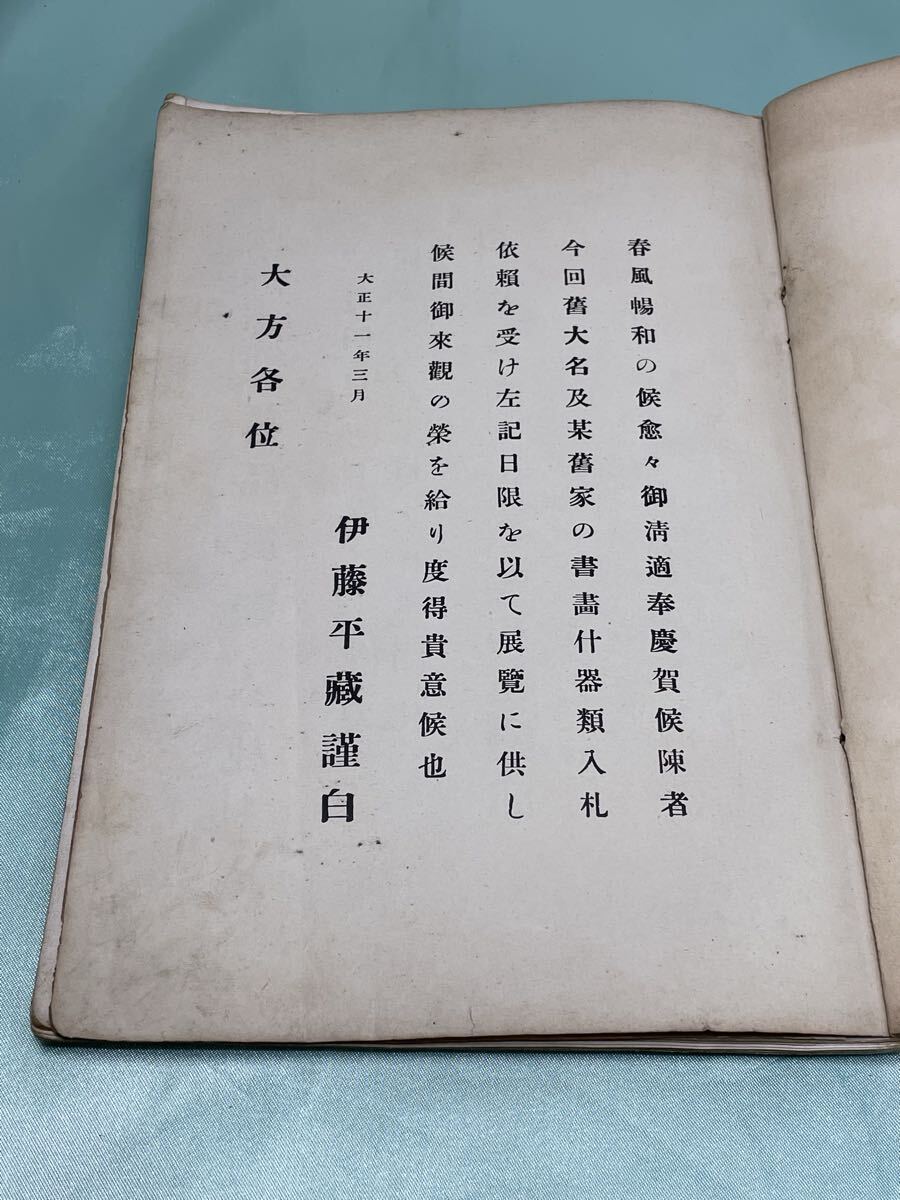 春風暢和の候愈々御淸適奉慶賀候陳者
今回舊大名及某舊家の書畵什器類入札
依賴を受け左記日限を以て展覽に供し
候間御來觀の榮を給り度得貴意候也
大正十一年三月
伊藤平藏謹白
大方各位